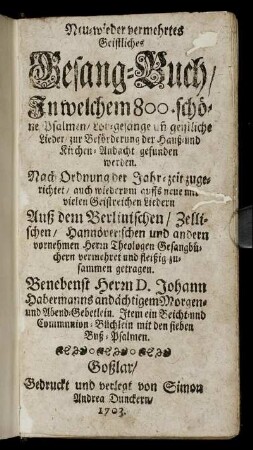 Neu-wieder vermehrtes
Geistliches
Gesang-Buch/
In welchem 800. schö-
ne Psalmen/ Lob-gesänge un̄ geistliche
Lieder/ zur Beförderung der Hauß-und
Kirchen-Andacht gefunden
werden.
Nach Ordnung der Jahr-zeit zuge-
richtet/ auch wiederum auffs neue mit
vielen Geistreichen Liedern
Auß dem Berlinischen/ Zelli-
schen/ Hannöverschen und andern
vornehmen Herrn Theologen Gesangbü-
chern vermehret und fleißig zu-
sammen getragen.
Benebenst Herrn D. Johann
Habermanns andächtigem Morgen-
und Abend-Gebetlein. Item ein Beicht-und
Communion-Büchlein mit den sieben
Buß-Psalmen.
Goßlar/
Gedruckt und verlegt von Simon
Andrea Dunckern/
1703.